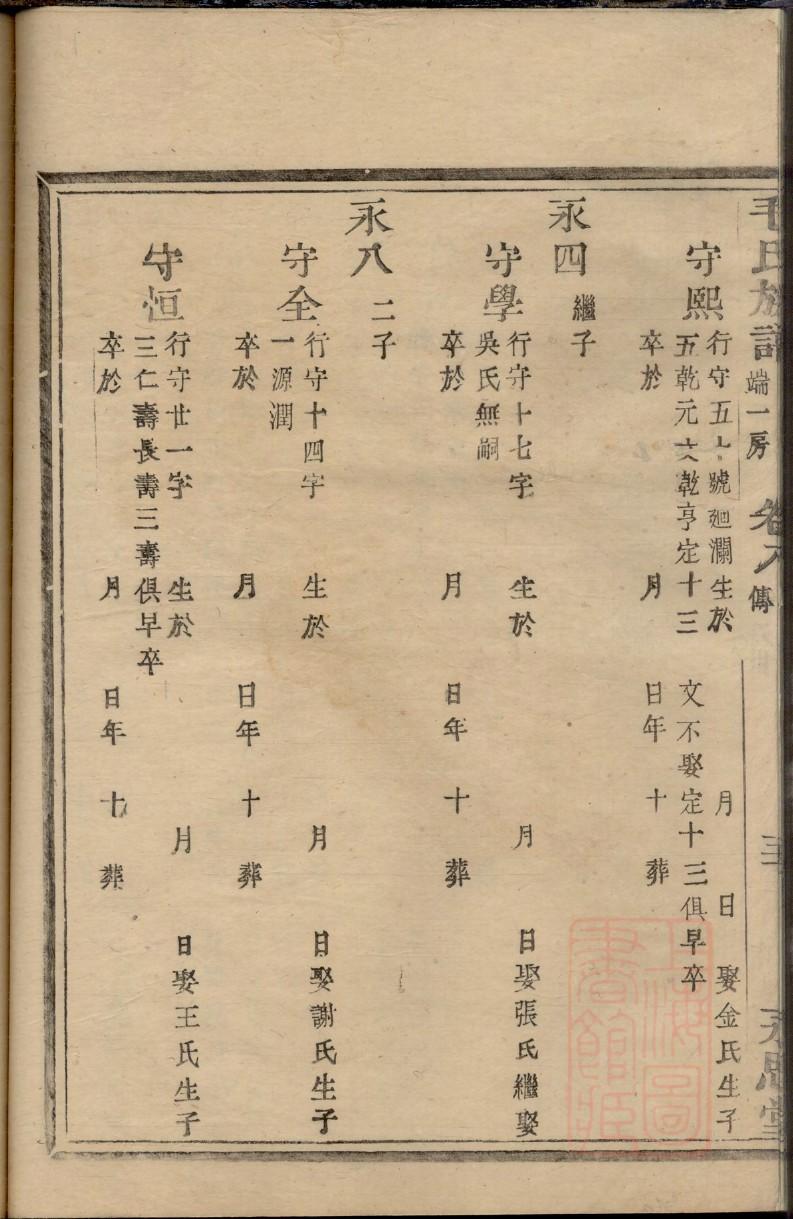 毛氏族譜 端一房 卷八 傳 三 永思堂
守熙
行守五七號廻瀾生於 月 日 娶金氏生子
五乾元文乾亨定十三 文不娶定十三俱早卒
卒於 月 日年 十 葬
永四 繼子
守學
行守十七字 生於 月 日娶張氏繼娶
吳氏無嗣
卒於 月 日年 十 葬
永八 二子
守全
行守十四字 生於 月 日娶謝氏生子
一源潤
卒於 月 日年 十 葬
守恒
行守廿一字 生於 月 日娶王氏生子
三仁壽長壽三壽俱早卒
卒於 月 日年 十 葬
上海圖書館藏